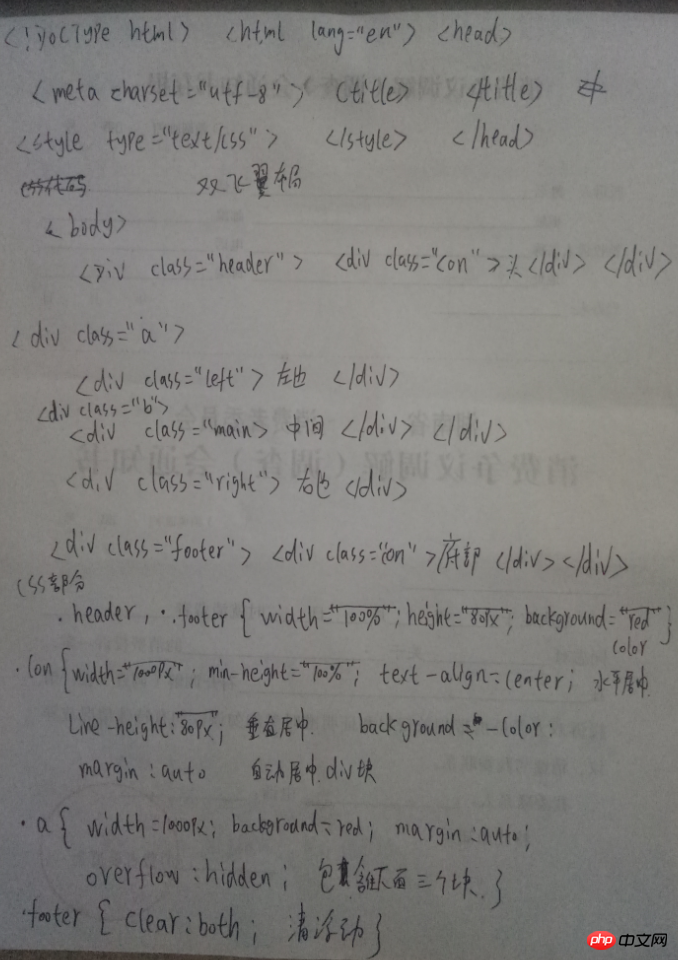 <!DocType html> <html lang="en"> <head>
<meta charset="utf-8"> <title> </title>
<style type="text/css"> </style> </head>
双飞翼布局
<body>
<div class="header"> <div class="con">头</div> </div>
<div class="a">
<div class="left"> 左边 </div>
<div class="b">
<div class="main> 中间 </div> </div>
<div class="right"> 右边 </div>
<div class="footer"> <div class="con">底部 </div> </div>
css部分
.header, .footer { width="100%"; height="80px"; background="red" }
color
.con{width="1000px"; min-height="100%"; text-align=center; 水平居中
Line-height:"80px"; 垂直居中 background-color:
margin:auto 自动居中 div块
.a{ width=1000px; background=red; margin:auto;
overflow:hidden; 包 下面三个块 }
.footer { clear:both; 清浮动 }
消费争议调解(调查)会通知书
php 中文网